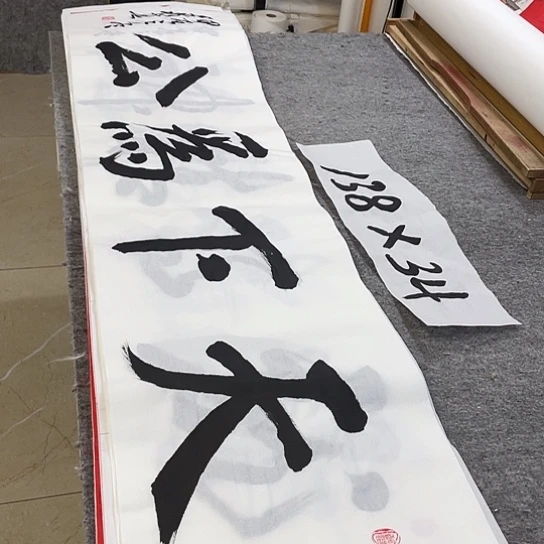 天下為公
138×34